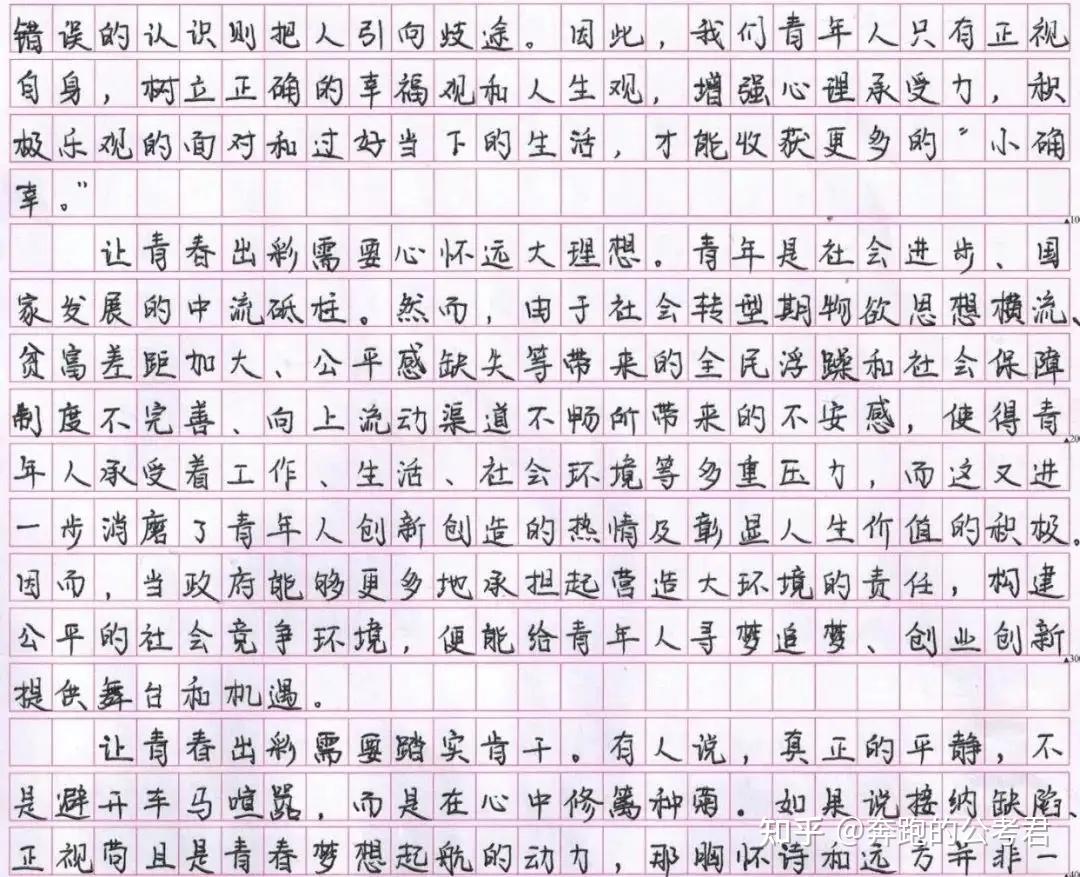 错误的认识则把人引向歧途。因此，我们青年人只有正视
自身，树立正确的幸福观和人生观，增强心理承受力，积
极乐观的面对和过好当下的生活，才能收获更多的“小确
幸。”
让青春出彩需要心怀远大理想。青年是社会进步、国
家发展的中流砥柱。然而，由于社会转型期物欲思想横流、
贫富差距加大、公平感缺失等带来的全民浮躁和社会保障
制度不完善、向上流动渠道不畅所带来的不安感，使得青
年人承受着工作、生活、社会环境等多重压力，而这又进
一步消磨了青年人创新创造的热情及彰显人生价值的积极。
因而，当政府能够更多地承担起营造大环境的责任，构建
公平的社会竞争环境，便能给青年人寻梦追梦、创业创新
提供舞台和机遇。
让青春出彩需要踏实肯干。有人说，真正的平静，不
是避开车马喧嚣，而是在心中修篱种菊。如果说接纳缺陷、
正视苟且是青春梦想起航的动力，那胸怀诗和远方并非一
知乎 @奔跑的公考君